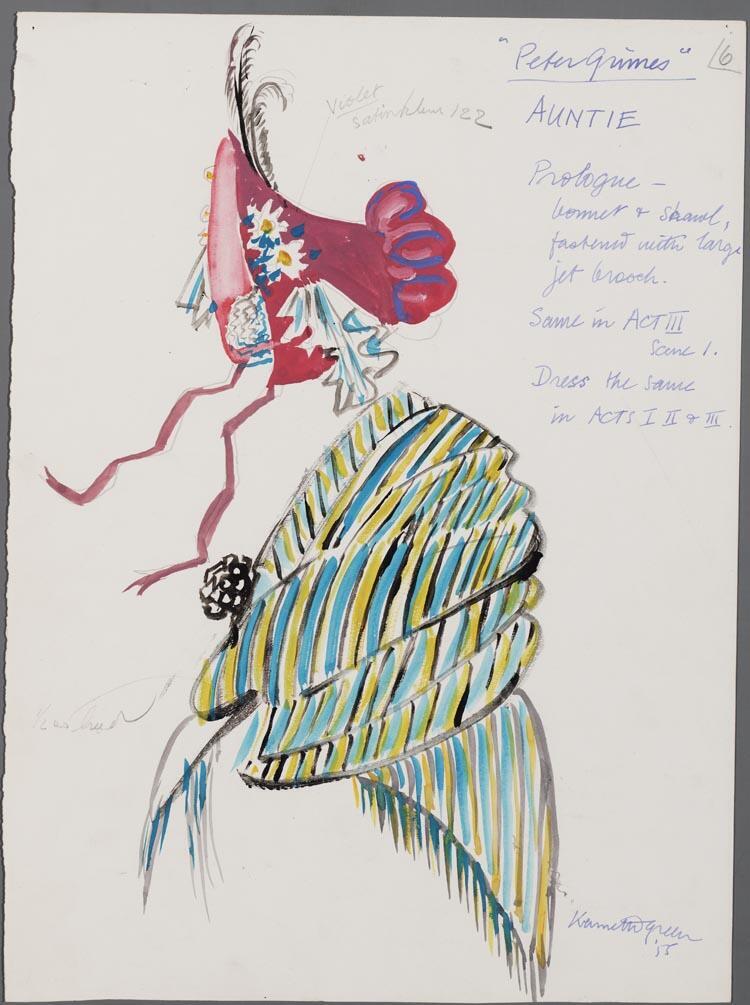 "Peter Grimes"
16
AUNTIE
Prologue -
bonnet & shawl,
fastened with large
jet brooch.
Same in ACT III
Scene 1.
Dress the same
in ACTS I II & III.
Violet
122
Kenneth Green
'55